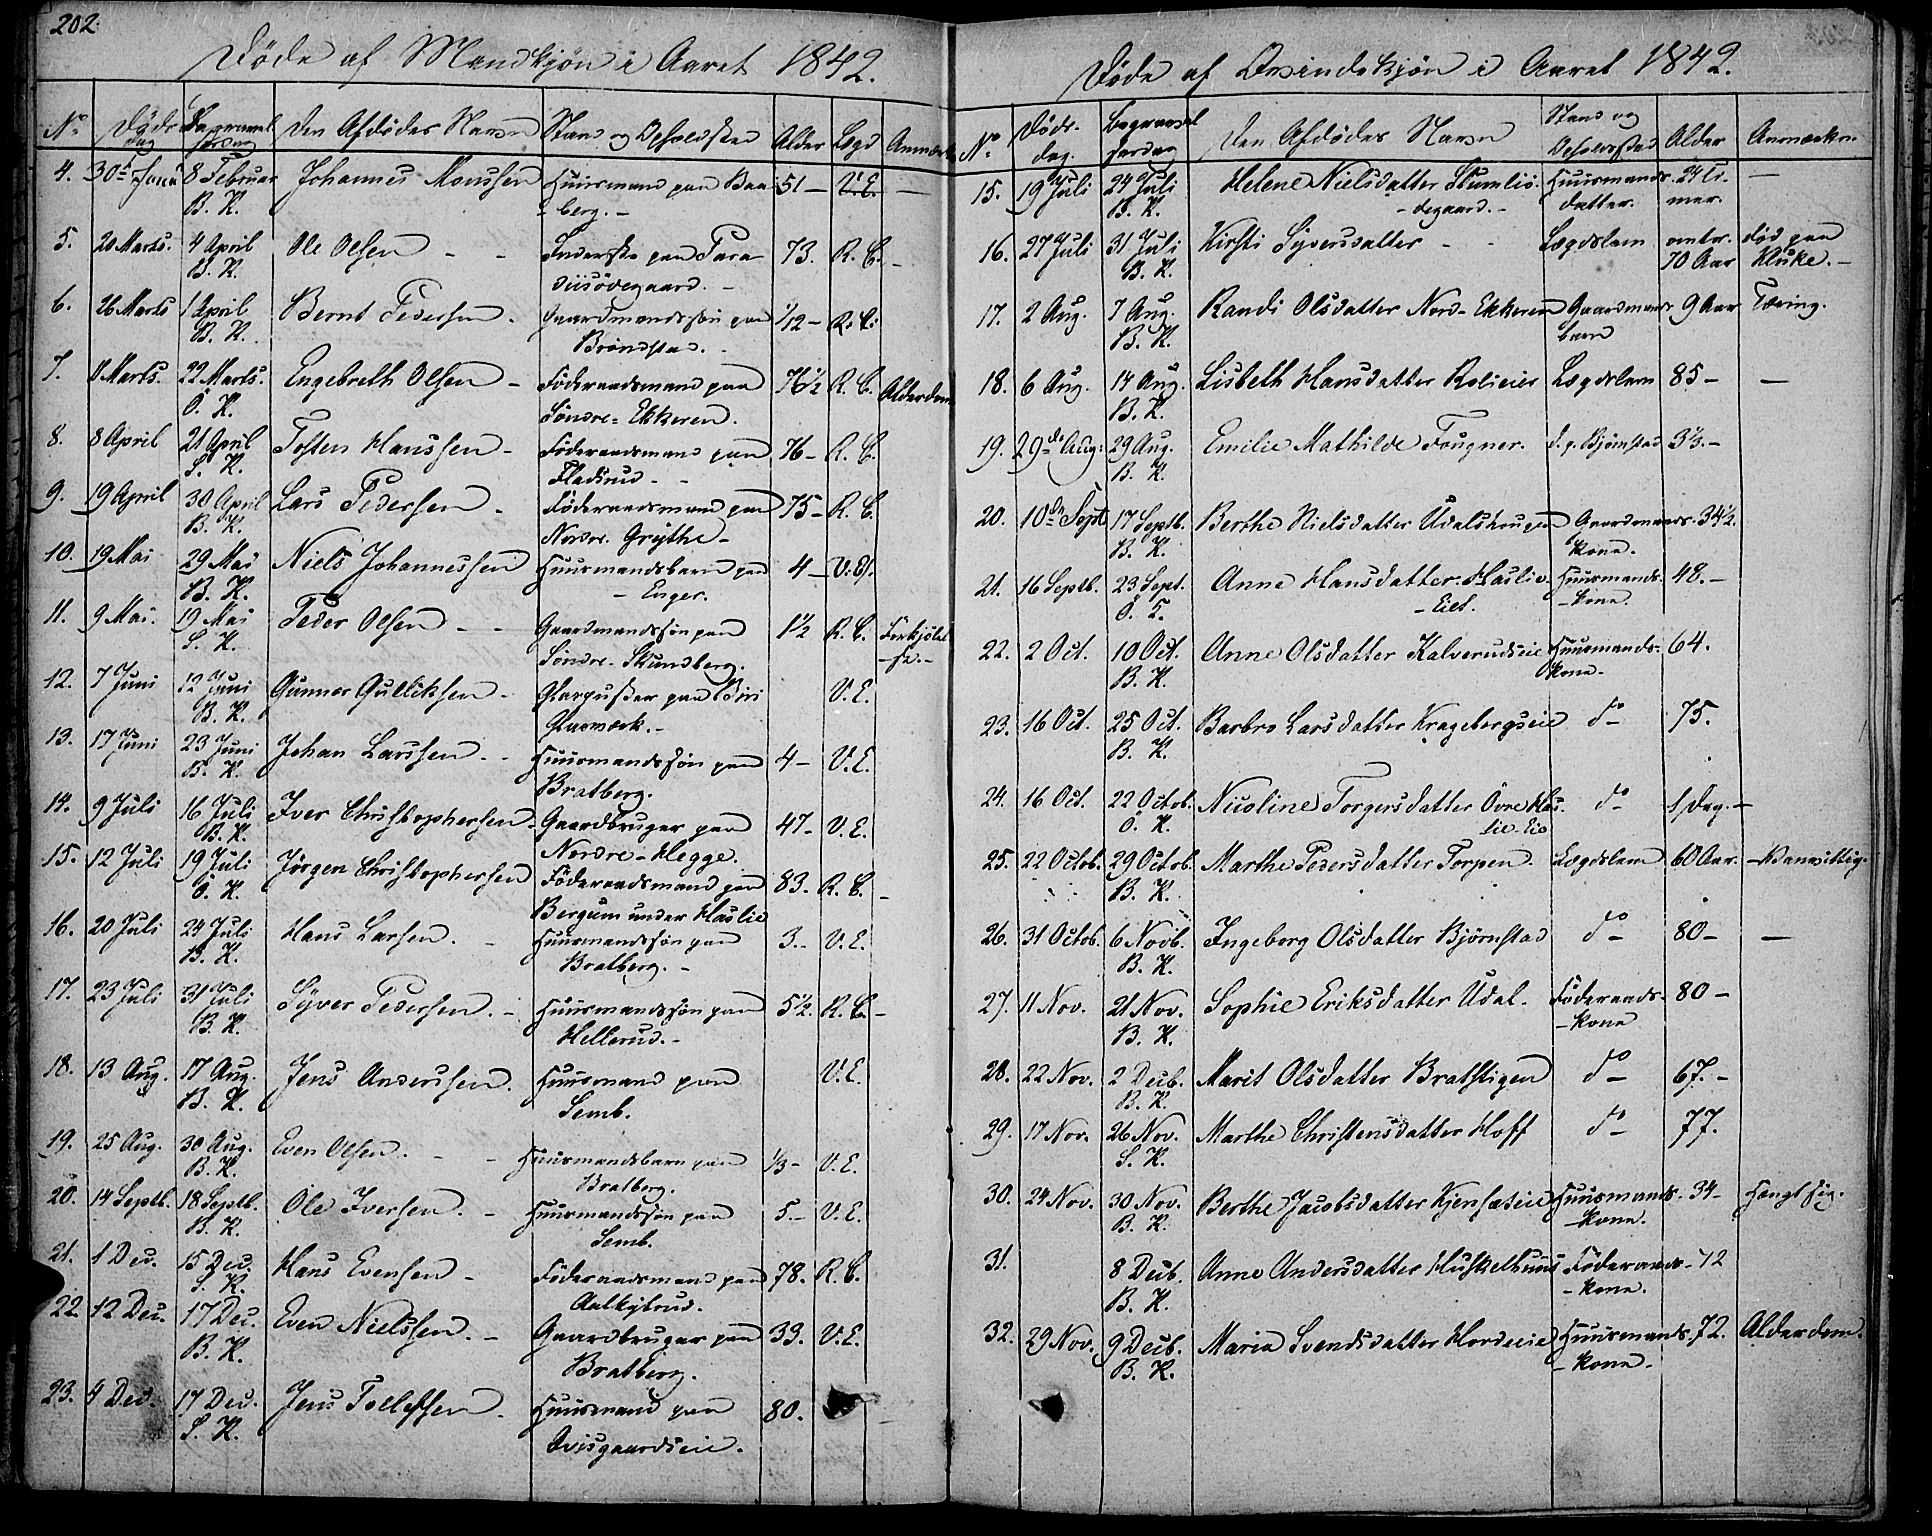 202.
Døde af Mandkjøn i Aaret 1842.
No Døds dag Begravelses dag Den Afdødes Navn Stand og Opholdsted Alder Lægd Anmærk
4. 30te Januar 8 Februar Johannes Monssen Huusmand paa Baa 51 – V. E. –
B. K. berg. –
5. 20 Marts. 4 April Ole Olsen – – Inderste paa Para 73. R. C. –
B. K. diisövegaard. –
6. 26 Marts 1 April Bernt Pedersen. Gaardmandssøn paa 1/12 – R. C.
B. K. Brøndstad. –
7. 11 Marts. 22 Marts. Engebreth Olsen – Föderaadsmand paa 76½ R. C. Alderdom
Ö. K. Söndre Ekkeren.
8. 8 April 21 April Tosten Hanssen – Föderaadsmand paa 76 – R. C.
S. K. Fladsrud – –
9. 19 April 30 April Lars Pedersen – Föderaadsmand paa 75 – R. C.
B. K. Nordre Grythe –
10. 19 Mai 29 Mai Niels Johannessen Huusmandsbarn paa 4 – V. E.
B. K. – Enger.
11. 9 Mai. 19 Mai Peder Olsen – – Gaardmandssøn paa 1½ R. C. Forkjølel
S. K. Söndre Skundberg. – se. –
12. 7 Juni 12 Juni Gunner Gulliksen – Glaspuster paa Biri V. E.
B. K. Glasværk. –
13. 17 Juni 23 Juni Johan Larssen – Huusmandssøn paa 4 – V. E.
B. K. Bratberg.
14. 9 Juli 16 Juli Iver Christophersen – Gaardbruger paa 47 – V. E.
B. K. Nordre – Hegge.
15. 12 Juli 19 Juli Jörgen Christophersen Föderaadsmand paa 83. R. C. –
Ö. K. Bergum under Haslie
16. 20 Juli 24 Juli Hans Larsen. – Huusmandssøn paa 3. – V. E.
B. K. Bratberg. –
17. 23 Juli 31 Juli Syver Pedersen. – Huusmandssøn paa 5½. R. C. –
B. K. Hellerud. –
18. 13 Aug. 17 Aug. Jens Anderssen. Huusmand paa V. E.
B. K. Semb.
19. 25 Aug. 30 Aug. Even Olsen. – – Huusmandsbarn paa ⅓ – V. E.
B. K. Bratberg.
20. 14 Septb. 18 Septb. Ole Iversen. – Huusmandssøn paa 5 – V. E.
B. K. Semb.
21. 1 Dec. 15 Dec. Hans Evensen – Föderaadsmand paa 78. R. C.
S. K.
22. 12 Dec. 17 Dec. Even Nielssen. – Gaardbruger paa 33. V. E.
B. K. Bratberg.
23. 4 Dec. 17 Dec. Jens Tollefsen. Huusmand paa 80.
S. K. Qvisgaardseie.
Døde af Qvindekjøn i Aaret 1842.
No. Døds- dag. Begravelses dag Den Afdødes Navn Stand og Opholdsstad Alder Anmærkn.
15. 19 Juli 24 Juli Helene Nielsdatter Skumlie- Huusmands- 24 Ti- –
B. K. – degaard. – datter. mer.
16. 27 Juli 31 Juli Kirsti Syversdatter – – Lægdslem omtr. død paa
B. K. 70 Aar Kluke. –
17. 2 Aug. 7 Aug. Randi Olsdatter Nord-Ekkeren Gaardmands 9 Aar Tæring.
B. K. barn
18. 6 Aug. 14 Aug. Lisbeth Hansdatter Lægdslem 85 – –
B. K.
19. 29de Aug. 29 Aug. Emilie Mathilde Fougner. d. p. Bjørnstad 3⅓. –
B. K.
20. 10de Sept 17 Septb. Berthe Nielsdatter Udalshaugen Gaardmands- 34½.
B. K. kone.
21. 16 Septb. 23 Sept. Anne Hansdatter Haslie- Huusmands- 48. –
Ö. K. – Eiet. – kone.
22. 2 Oct. 10 Oct. Anne Olsdatter Kalverudseie Huusmands- 64.
B. K. kone.
23. 16 Oct. 25 Oct. Barbro Larsdatter Kragebergseie do – 75.
B. K.
24. 16 Oct. 22 Octob. Nicoline Torgersdatter Övre Has- do – 1 Dag. –
Ö. K. lie-Eie
25. 22 Octob. 29 Octob. Marthe Pedersdatter Torpen. Lægdslem 60 Aar. – Vanvittig.
B. K.
26. 31 Octob. 6 Novb. Ingeborg Olsdatter Bjørnstad do – 80 – –
B. K.
27. 11 Nov. 21 Nov. Sophie Eriksdatter Udal. Föderaads- 80 –
B. K. – kone
28. 22 Nov. 2 Decb. Marit Olsdatter Bratstigen do – 67. –
B. K.
29. 17 Nov. 26 Nov. Marthe Christensdatter Hoff do – 77.
S. K.
30. 24 Nov. 30 Nov. Berthe Jacobsdatter Huusmands- 34 – Hængt sig.
B. K. – kone.
31. 8 Decb. Anne Andersdatter Huskelhuus Föderaads- 72
B. K. – kone.
32. 29 Nov. 9 Decb. Maria Svendsdatter Hordeeie Huusmands- 72. Alderdom.
B. K. – kone.